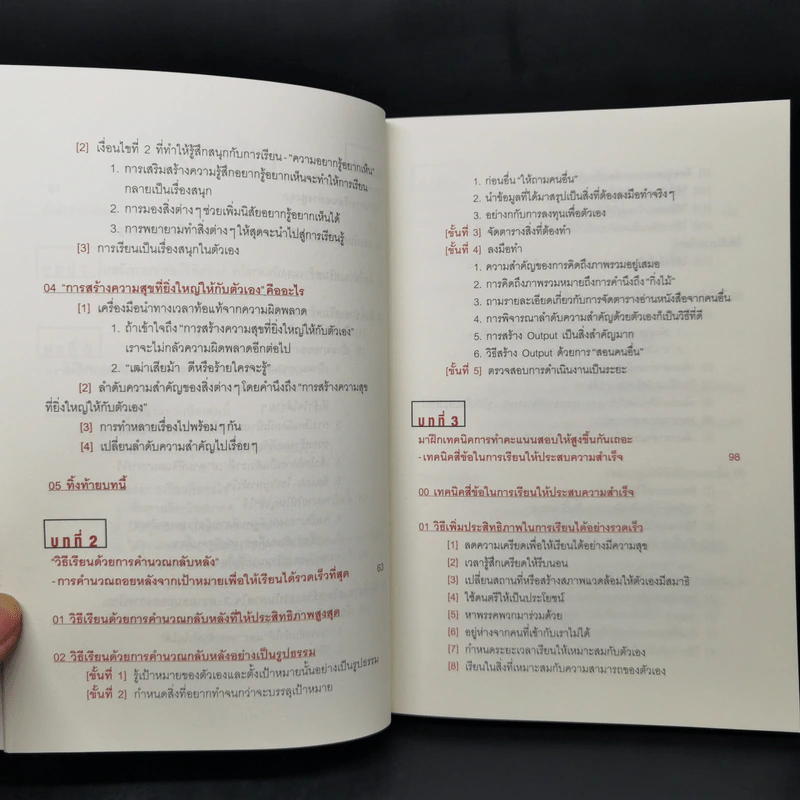 [2] เงื่อนไขที่ 2 ที่ทำให้รู้สึกสนุกกับการเรียน - "ความอยากรู้อยากเห็น"
1. การเสริมสร้างความรู้สึกอยากรู้อยากเห็นจะทำให้การเรียน
กลายเป็นเรื่องสนุก
2. การมองสิ่งต่างๆ ช่วยเพิ่มนิสัยอยากรู้อยากเห็นได้
3. การพยายามทำสิ่งต่างๆ ให้สุดจะนำไปสู่การเรียนรู้
[3] การเรียนเป็นเรื่องสนุกในตัวเอง
04 "การสร้างความสุขที่ยิ่งใหญ่ให้กับตัวเอง" คืออะไร
[1] เครื่องมือนำทางเวลาท้อแท้จากความผิดพลาด
1. ถ้าเข้าใจถึง "การสร้างความสุขที่ยิ่งใหญ่ให้กับตัวเอง"
เราจะไม่กลัวความผิดพลาดอีกต่อไป
2. "เฒ่าเสียม้า ดีหรือร้ายใครจะรู้"
[2] ลำดับความสำคัญของสิ่งต่างๆ โดยคำนึงถึง "การสร้างความสุข
ที่ยิ่งใหญ่ให้กับตัวเอง"
[3] การทำหลายเรื่องไปพร้อมๆ กัน
[4] เปลี่ยนลำดับความสำคัญไปเรื่อยๆ
05 ทิ้งท้ายบทนี้
บทที่ 2
"วิธีเรียนด้วยการคำนวณกลับหลัง" 63
- การคำนวณถอยหลังจากเป้าหมายเพื่อให้เรียนได้รวดเร็วที่สุด
01 วิธีเรียนด้วยการคำนวณกลับหลังที่ให้ประสิทธิภาพสูงสุด
02 วิธีเรียนด้วยการคำนวณกลับหลังอย่างเป็นรูปธรรม
[ขั้นที่ 1] รู้เป้าหมายของตัวเองและตั้งเป้าหมายนั้นอย่างเป็นรูปธรรม
[ขั้นที่ 2] กำหนดสิ่งที่อยากทำจนกว่าจะบรรลุเป้าหมาย
1. ก่อนอื่น "ให้ถามคนอื่น"
2. นำข้อมูลที่ได้มาสรุปเป็นสิ่งที่ต้องลงมือทำจริงๆ
3. อย่างกกับการลงทุนเพื่อตัวเอง
[ขั้นที่ 3] จัดตารางสิ่งที่ต้องทำ
[ขั้นที่ 4] ลงมือทำ
1. ความสำคัญของการคิดถึงภาพรวมอยู่เสมอ
2. การคิดถึงภาพรวมหมายถึงการคำนึงถึง "กิ่งไม้"
3. ถามรายละเอียดเกี่ยวกับการจัดตารางอ่านหนังสือจากคนอื่น
4. การพิจารณาลำดับความสำคัญด้วยตัวเองก็เป็นวิธีที่ดี
5. การสร้าง Output เป็นสิ่งสำคัญมาก
6. วิธีสร้าง Output ด้วยการ "สอนคนอื่น"
[ขั้นที่ 5] ตรวจสอบการดำเนินงานเป็นระยะ
บทที่ 3
มาฝึกเทคนิคการทำคะแนนสอบให้สูงขึ้นกันเถอะ
- เทคนิคสี่ข้อในการเรียนให้ประสบความสำเร็จ 98
00 เทคนิคสี่ข้อในการเรียนให้ประสบความสำเร็จ
01 วิธีเพิ่มประสิทธิภาพในการเรียนได้อย่างรวดเร็ว
[1] ลดความเครียดเพื่อให้เรียนได้อย่างมีความสุข
[2] เวลารู้สึกเครียดให้รีบนอน
[3] เปลี่ยนสถานที่หรือสร้างสภาพแวดล้อมให้ตัวเองมีสมาธิ
[4] ใช้ดนตรีให้เป็นประโยชน์
[5] หาพรรคพวกมาร่วมด้วย
[6] อยู่ห่างจากคนที่เข้ากับเราไม่ได้
[7] กำหนดระยะเวลาเรียนให้เหมาะสมกับตัวเอง
[8] เรียนในสิ่งที่เหมาะสมกับความสามารถของตัวเอง